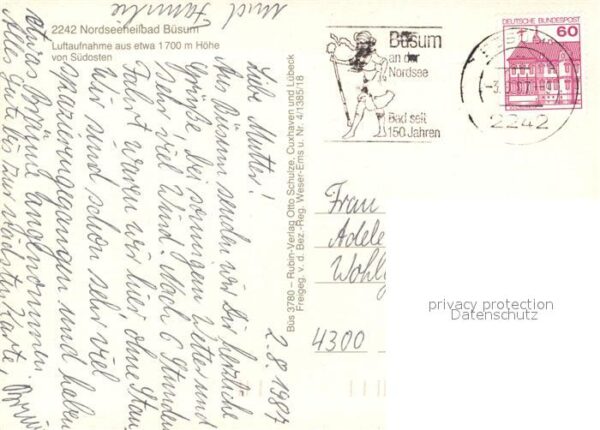 2242 Nordseeheilbad Büsum
Luftaufnahme aus etwa 1700 m Höhe
von Südosten
Büs 3780 – Rubin-Verlag Otto Schulze, Cuxhaven und Lübeck
Freigeg. v. d. Bez.-Reg. Weser-Ems u. Nr. 4/1385/18
Büsum
an der
Nordsee
Bad seit
150 Jahren
DEUTSCHE BUNDESPOST
60
2242
2.8.1987
Liebe Mutter!
Aus Büsum senden wir Dir herzliche
Grüße, bei sonnigen Wetter und
sehr viel Wind. Nach 6 Stunden
Fahrt waren wir hier ohne Stau.
Wir sind schon sehr viel
spazierengegangen und haben
etwas Bräune angenommen.
Alles Gute bis zur nächsten Karte,
und Familie
Frau
Adele
4300
privacy protection
Datenschutz